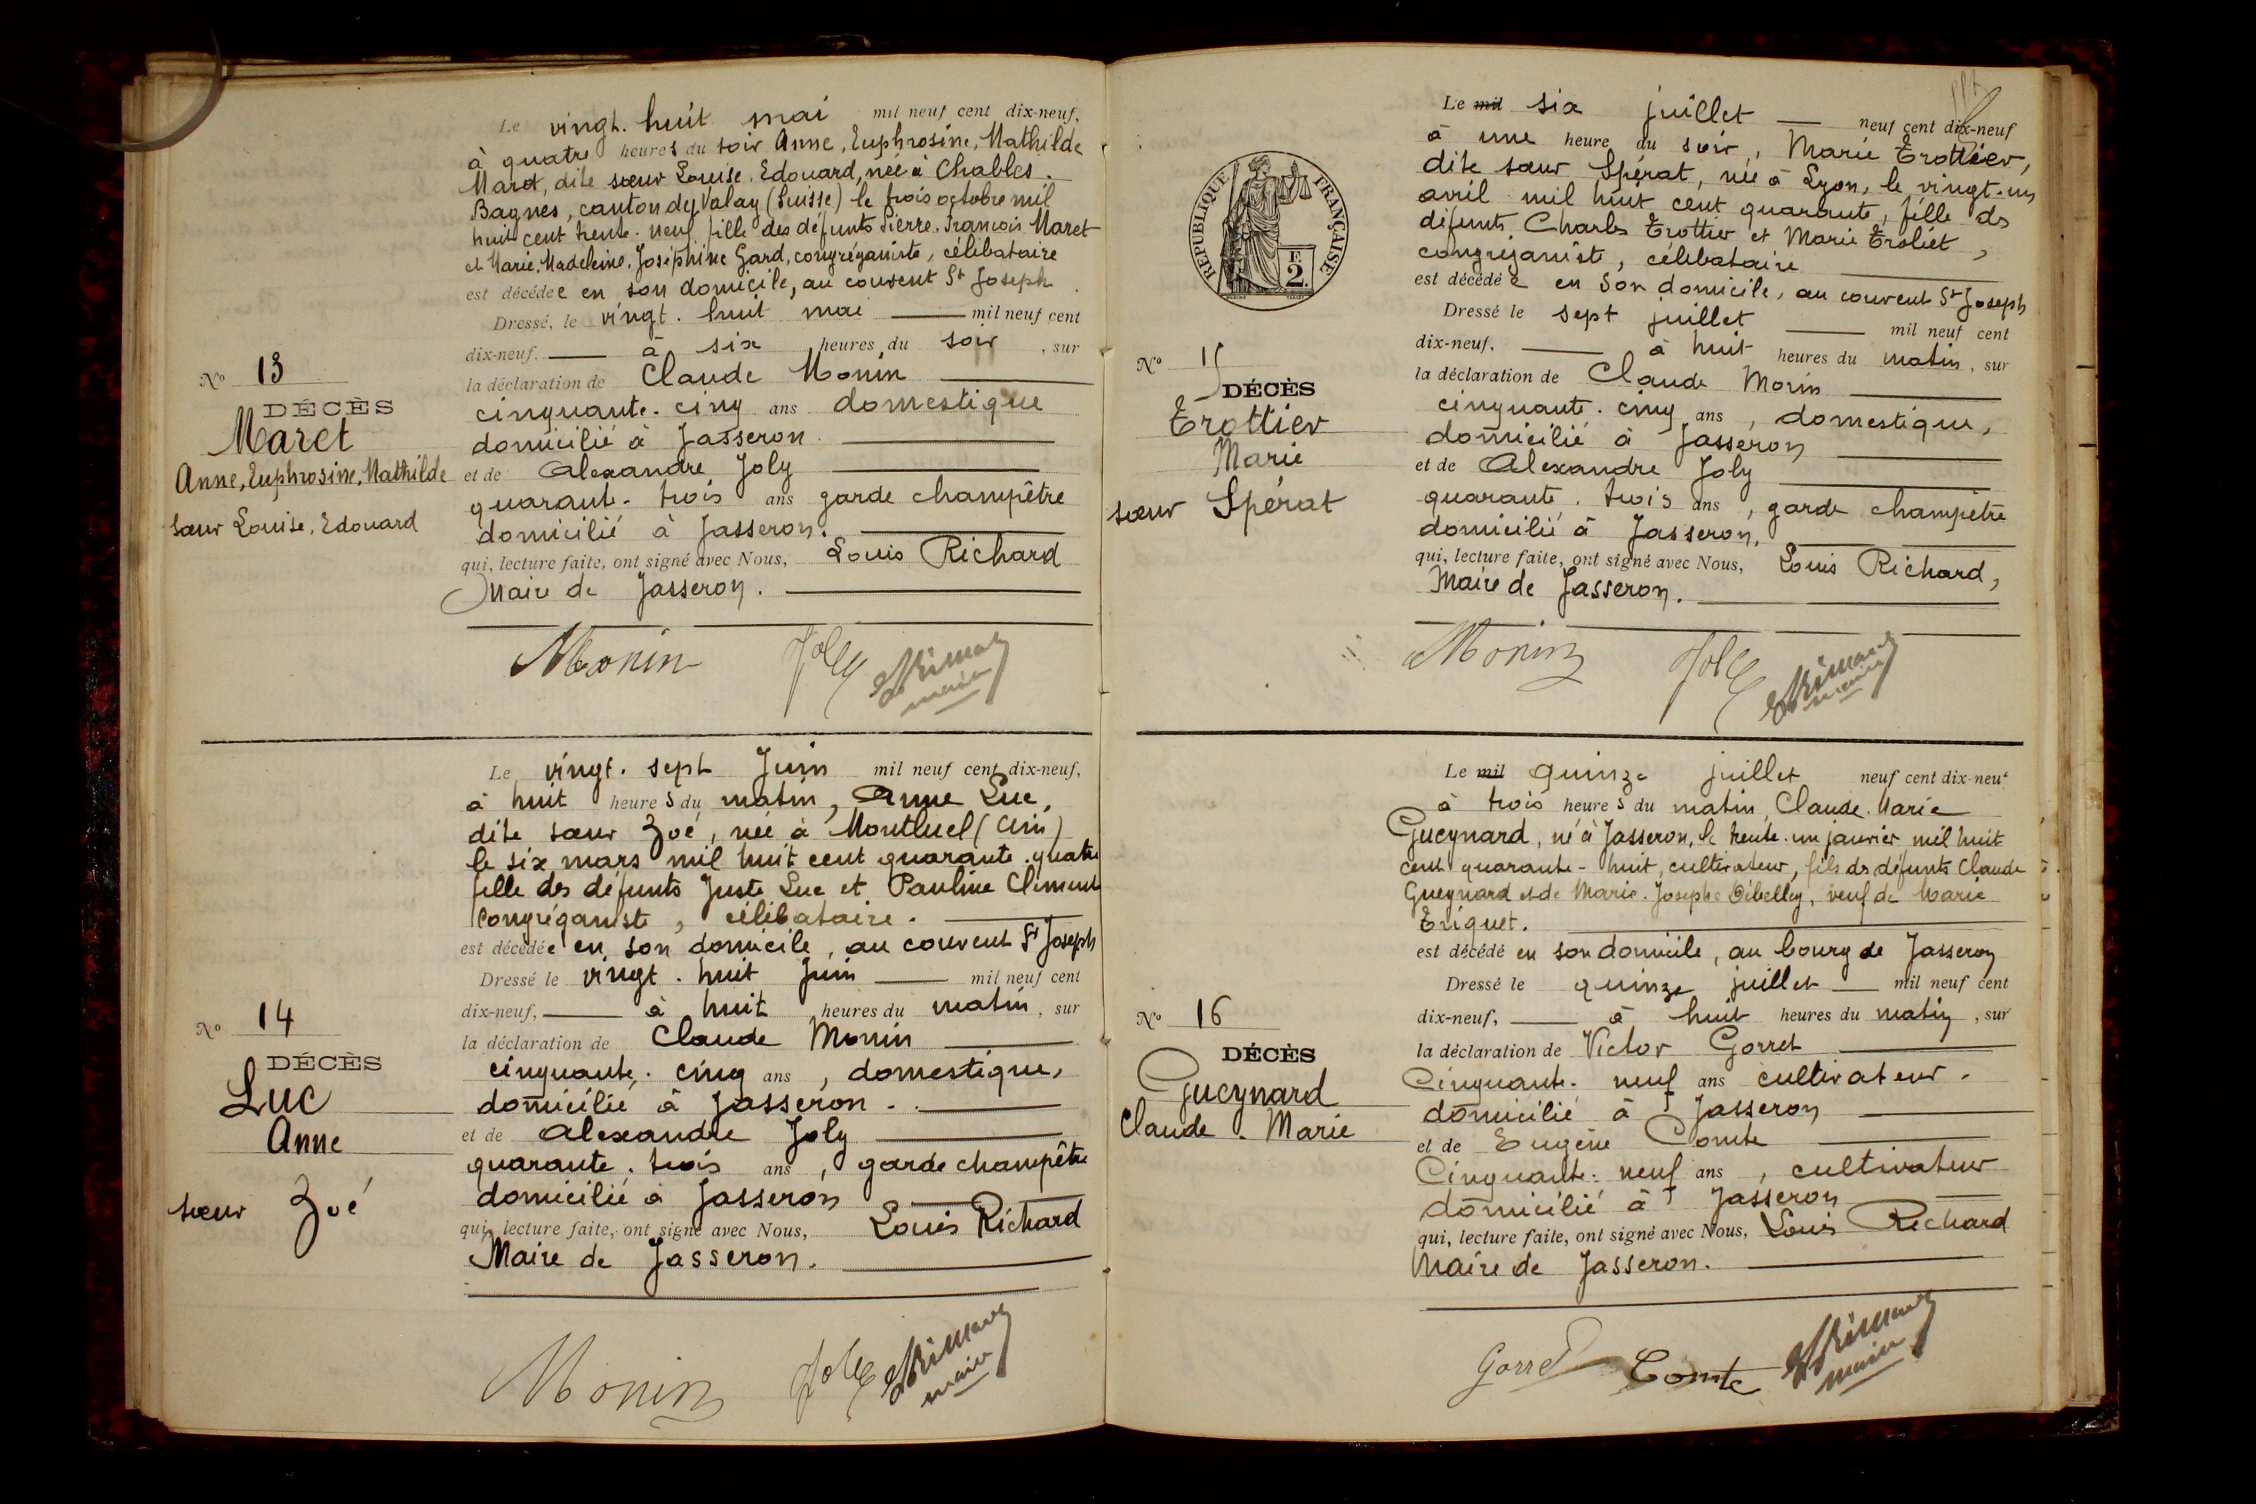 Le vingt. huit mai mil neuf cent dix-neuf,
à quatre heures du soir Anne, Euphrosine, Mathilde
Maret, dite sœur Louise. Edouard, née à Chables.
Bagnes, canton du Valay (Suisse) le trois octobre mil
huit cent trente. neuf, fille des défunts Pierre. François Maret
et Marie. Madeleine. Joséphine Gard, congréganiste, célibataire
est décédée en son domicile, au couvent St Joseph
Dressé, le vingt. huit mai mil neuf cent
dix-neuf. à six heures du soir, sur
No 13
la déclaration de Claude Monin
DÉCÈS
cinquante. cinq ans domestique
Maret
domicilié à Jasseron
Anne, Euphrosine, Mathilde
et de Alexandre Joly
quarante. trois ans garde champêtre
sœur Louise. Edouard
domicilié à Jasseron.
qui, lecture faite, ont signé avec Nous, Louis Richard
Maire de Jasseron.
Monin Joly
maire
Le vingt. sept Juin mil neuf cent dix-neuf,
à huit heures du matin, Anne Luc,
dite sœur Zoé, née à Montluel (Ain)
le six mars mil huit cent quarante. quatre
fille des défunts Juste Luc et Pauline Climent
congréganiste, célibataire.
est décédée en son domicile, au couvent St Joseph
Dressé le vingt. huit Juin mil neuf cent
dix-neuf, à huit heures du matin, sur
No 14
la déclaration de Claude Monin
DÉCÈS
cinquante. cinq ans, domestique,
Luc
domicilié à Jasseron.
Anne
et de Alexandre Joly
quarante. trois ans, garde champêtre
sœur Zoé
domicilié à Jasseron
qui, lecture faite, ont signé avec Nous, Louis Richard
Maire de Jasseron.
Monin Joly
maire
Le mil six juillet neuf cent dix-neuf
à une heure du soir, Marie Trottier,
dite sœur Spérat, née à Lyon, le vingt-un
avril mil huit cent quarante, fille des
défunts Charles Trottier et Marie Troliet,
congréganiste, célibataire
RÉPUBLIQUE FRANÇAISE
E
2.
est décédée en son domicile, au couvent St Joseph
Dressé le sept juillet mil neuf cent
dix-neuf. à huit heures du matin, sur
No 15
la déclaration de Claude Monin
DÉCÈS
cinquante. cinq ans, domestique,
Trottier
domicilié à Jasseron
Marie
et de Alexandre Joly
sœur Spérat
quarante. trois ans, garde champêtre
domicilié à Jasseron.
qui, lecture faite, ont signé avec Nous, Louis Richard,
Maire de Jasseron.
Monin Joly
maire
Le mil quinze juillet neuf cent dix-neuf
à trois heures du matin, Claude. Marie
Gueynard, né à Jasseron, le trente. un janvier mil huit
cent quarante-huit, cultivateur, fils des défunts Claude
Gueynard et de Marie. Josephe Débelley, veuf de Marie
Eriquet.
est décédé en son domicile, au bourg de Jasseron
Dressé le quinze juillet mil neuf cent
dix-neuf, à huit heures du matin, sur
No 16
la déclaration de Victor Gorret
DÉCÈS
Cinquante. neuf ans cultivateur.
Gueynard
domicilié à Jasseron
Claude. Marie
et de Eugène Comte
Cinquante. neuf ans, cultivateur
domicilié à Jasseron
qui, lecture faite, ont signé avec Nous, Louis Richard
Maire de Jasseron.
Gorret Comte
maire